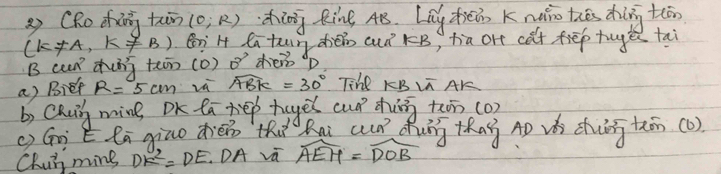 2) Cho đường tròn (O, R) đường kính AB. Lấy điểm K nằm trên đường tròn
(K ≠ A, K ≠ B). Gọi H là trung điểm của KB, tia OH cắt tiếp tuyến tại
B của đường tròn (O) ở điểm D.
a) Biết R = 5 cm và \widehat{ABK} = 30° Tính KB và AK
b) Chứng minh DK là tiếp tuyến của đường tròn (O)
c) Gọi E là giao điểm thứ hai của đường thẳng AD với đường tròn (O).
Chứng minh DK² = DE. DA và \widehat{AEH} = \widehat{DOB}